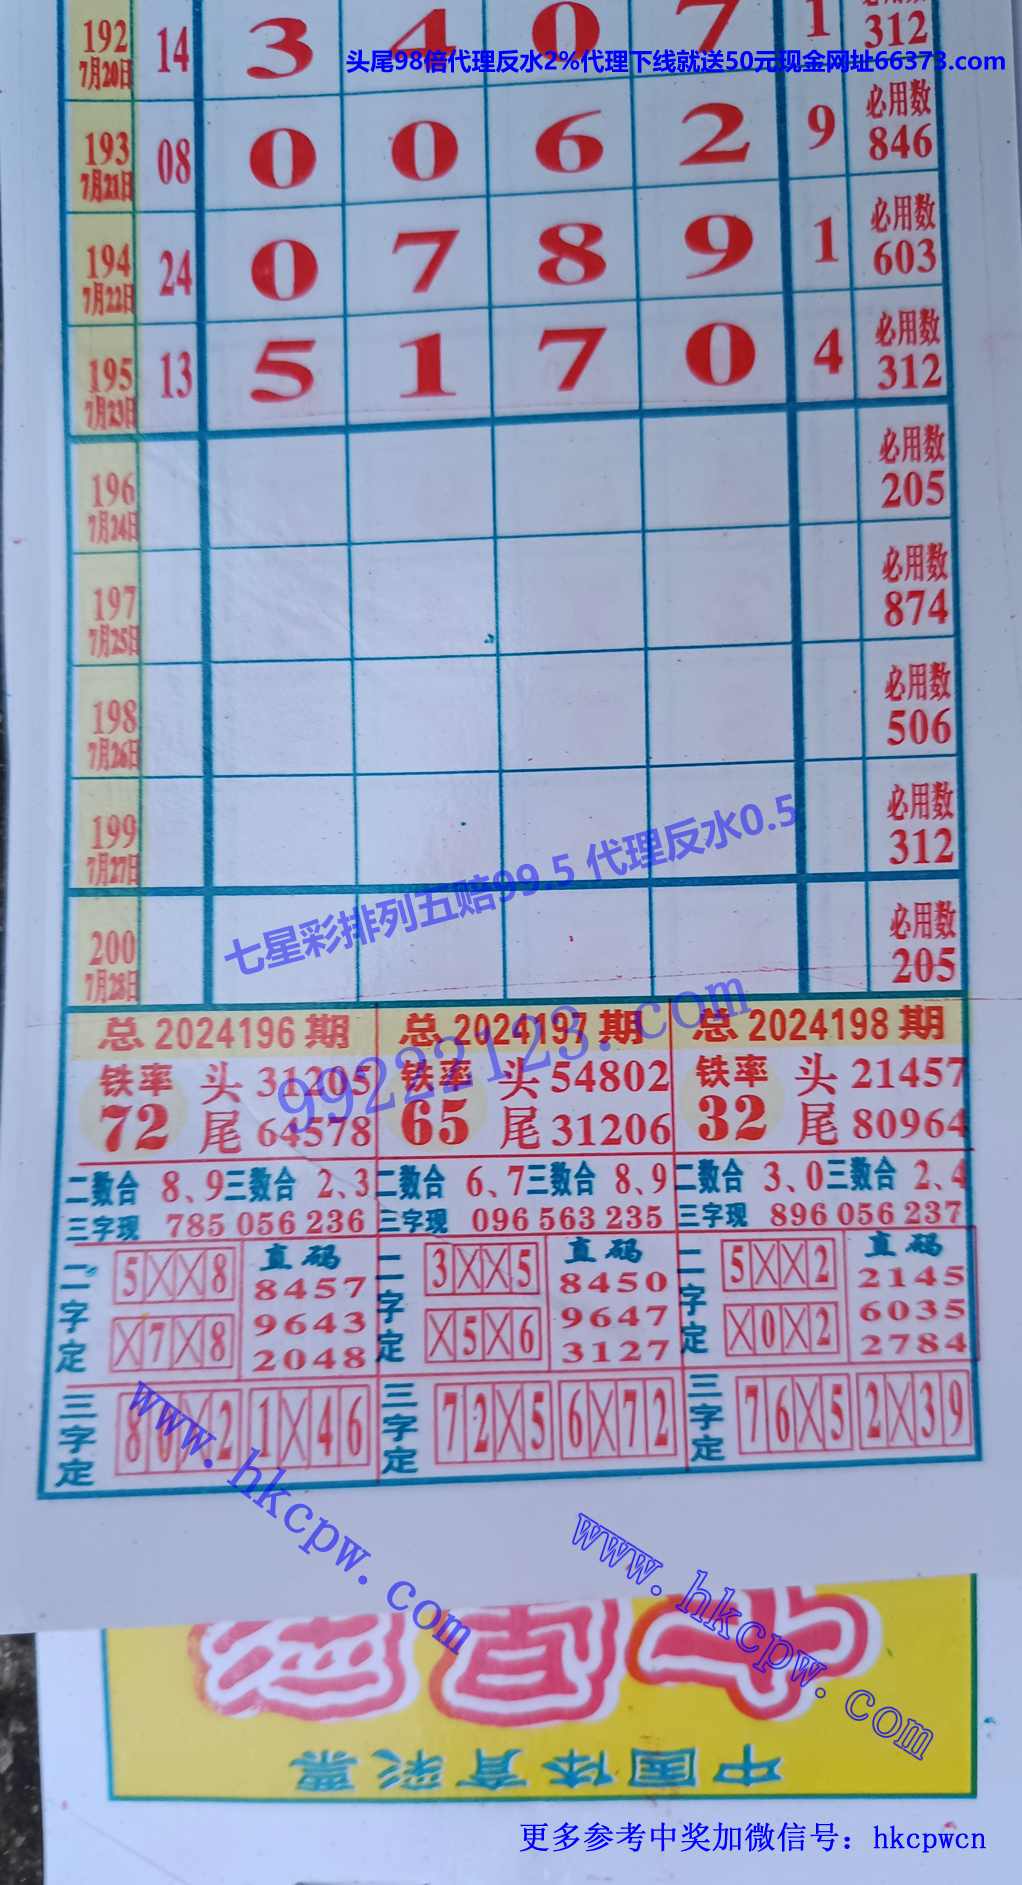 192 14 3 4 0 7 1 312
7月20日
头尾98倍代理反水2%代理下线就送50元现金网址66373.com
必用数
193 08 0 0 6 2 9 846
7月21日
必用数
194 24 0 7 8 9 1 603
7月22日
必用数
195 13 5 1 7 0 4 312
7月23日
必用数
196 205
7月24日
必用数
197 874
7月25日
必用数
198 506
7月26日
必用数
199 312
7月27日
七星彩排列五赔99.5 代理反水0.5
必用数
200 205
7月28日
99222123.com
总2024196期 总2024197期 总2024198期
铁率 头31205 铁率 头54802 铁率 头21457
72 尾64578 65 尾31206 32 尾80964
二数合 8、9 三数合 2、3 二数合 6、7 三数合 8、9 二数合 3、0 三数合 2、4
三字现 785 056 236 三字现 096 563 235 三字现 896 056 237
二字定 5XX8 直码 二字定 3XX5 直码 二字定 5XX2 直码
8457 8450 2145
X7X8 9643 X5X6 9647 X0X2 6035
2048 3127 2784
三字定 80X2 1X46 三字定 72X5 6X72 三字定 76X5 2X39
www.hkcpw.com
www.hkcpw.com
中国体育彩票
更多参考中奖加微信号：hkcpwcn